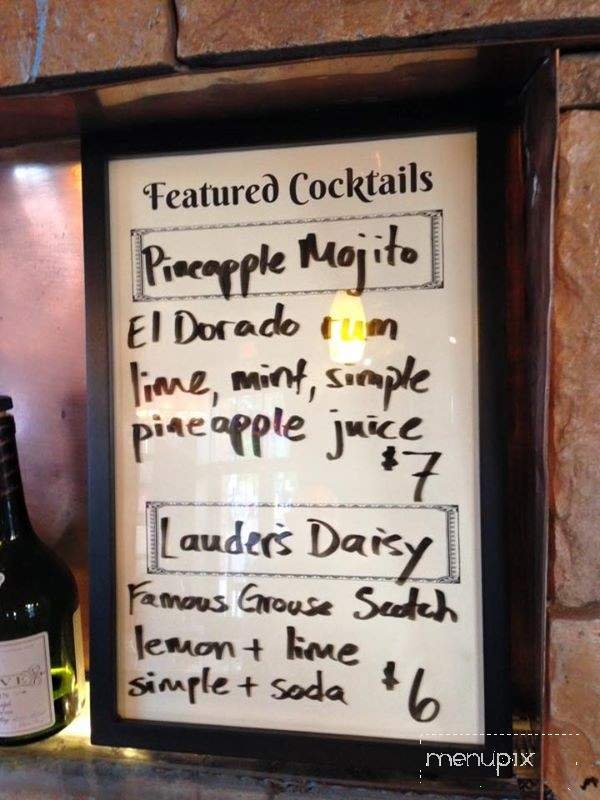 Featured Cocktails
Pineapple Mojito
El Dorado rum
lime, mint, simple
pineapple juice
$7
Lauder's Daisy
Famous Grouse Scotch
lemon + lime
simple + soda
$6
menupix